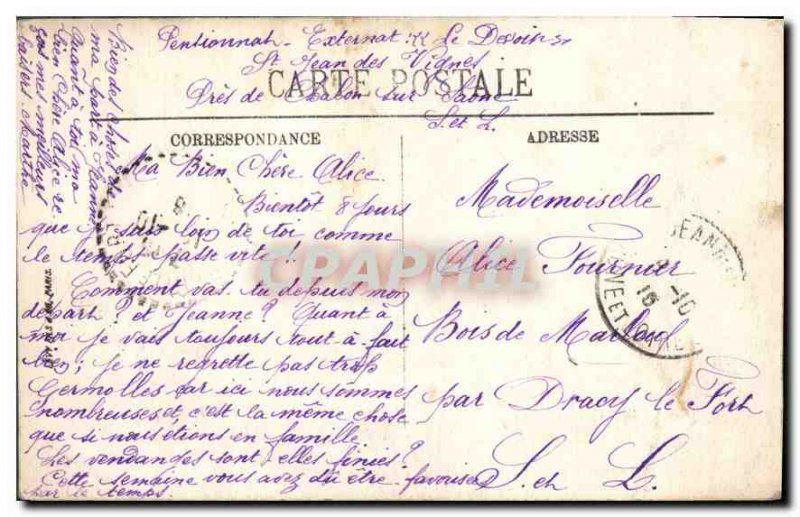 Pensionnat - Externat
St Jean des Vignes
CARTE POSTALE
Près de Chalon sur Saône
S. et L.
CORRESPONDANCE
ADRESSE
Ma Bien Chère Alice
Bientôt 8 jours
que je suis loin de toi comme
le temps passe vite !
Comment vas tu depuis mon
départ ? et Jeanne ? Quant à
moi je vais toujours tout à fait
bien ; je ne regrette pas trop
Germolles car ici nous sommes
nombreuses et c'est la même chose
que si nous étions en famille
Les vendanges sont elles finies ?
Cette semaine vous avez dû être favorisés
par le temps.
Bien des choses
ma à Jeanne
Quant à toi ma
bien chère Alice re
çois mes meilleurs
baisers Marthe
Mademoiselle
Alice Fournier
Bois de
par Dracy le Fort
S. et L.
CPAPHIL
SAONE ET LOIRE